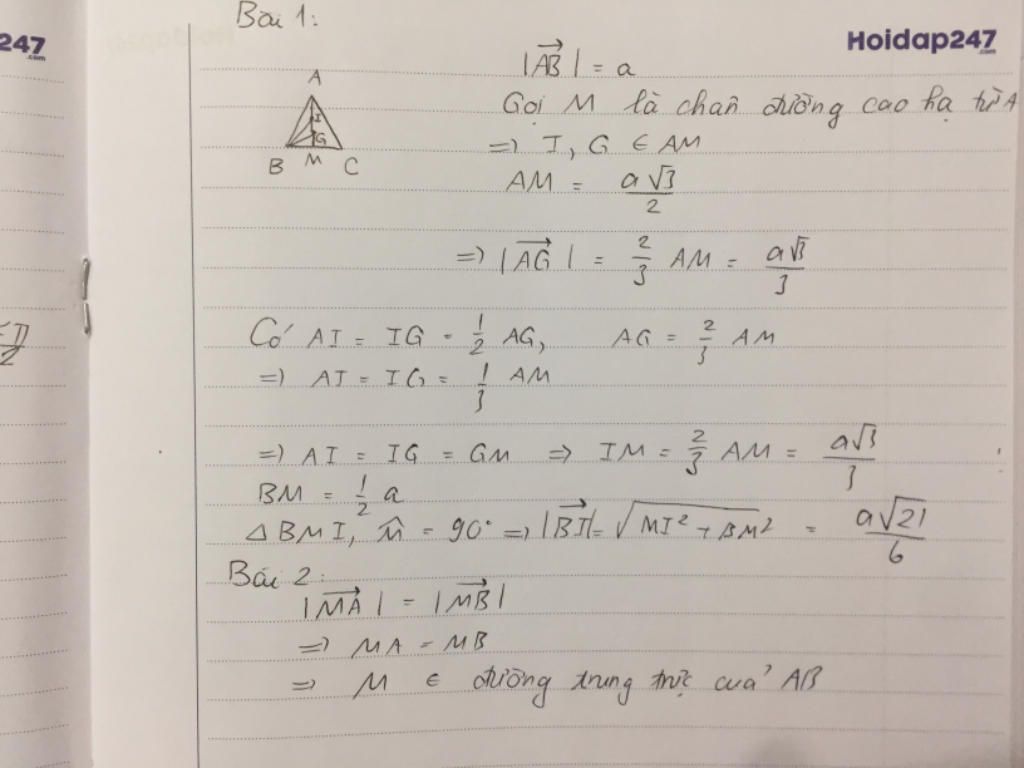 Bài 1:
247
.com
Hoidap247
.com
|AB| = a
A
I
G
B M C
Gọi M là chân đường cao hạ từ A
=> I, G ∈ AM
AM = a√3/2
=> |AG| = 2/3 AM = a√3/3
Có AI = IG = 1/2 AG, AG = 2/3 AM
=> AI = IG = 1/3 AM
=> AI = IG = GM => IM = 2/3 AM = a√3/3
BM = 1/2 a
△BMI, M̂ = 90° => |BI| = √MI² + BM² = a√21/6
Bài 2:
|MA| = |MB|
=> MA = MB
=> M ∈ đường trung trực của AB